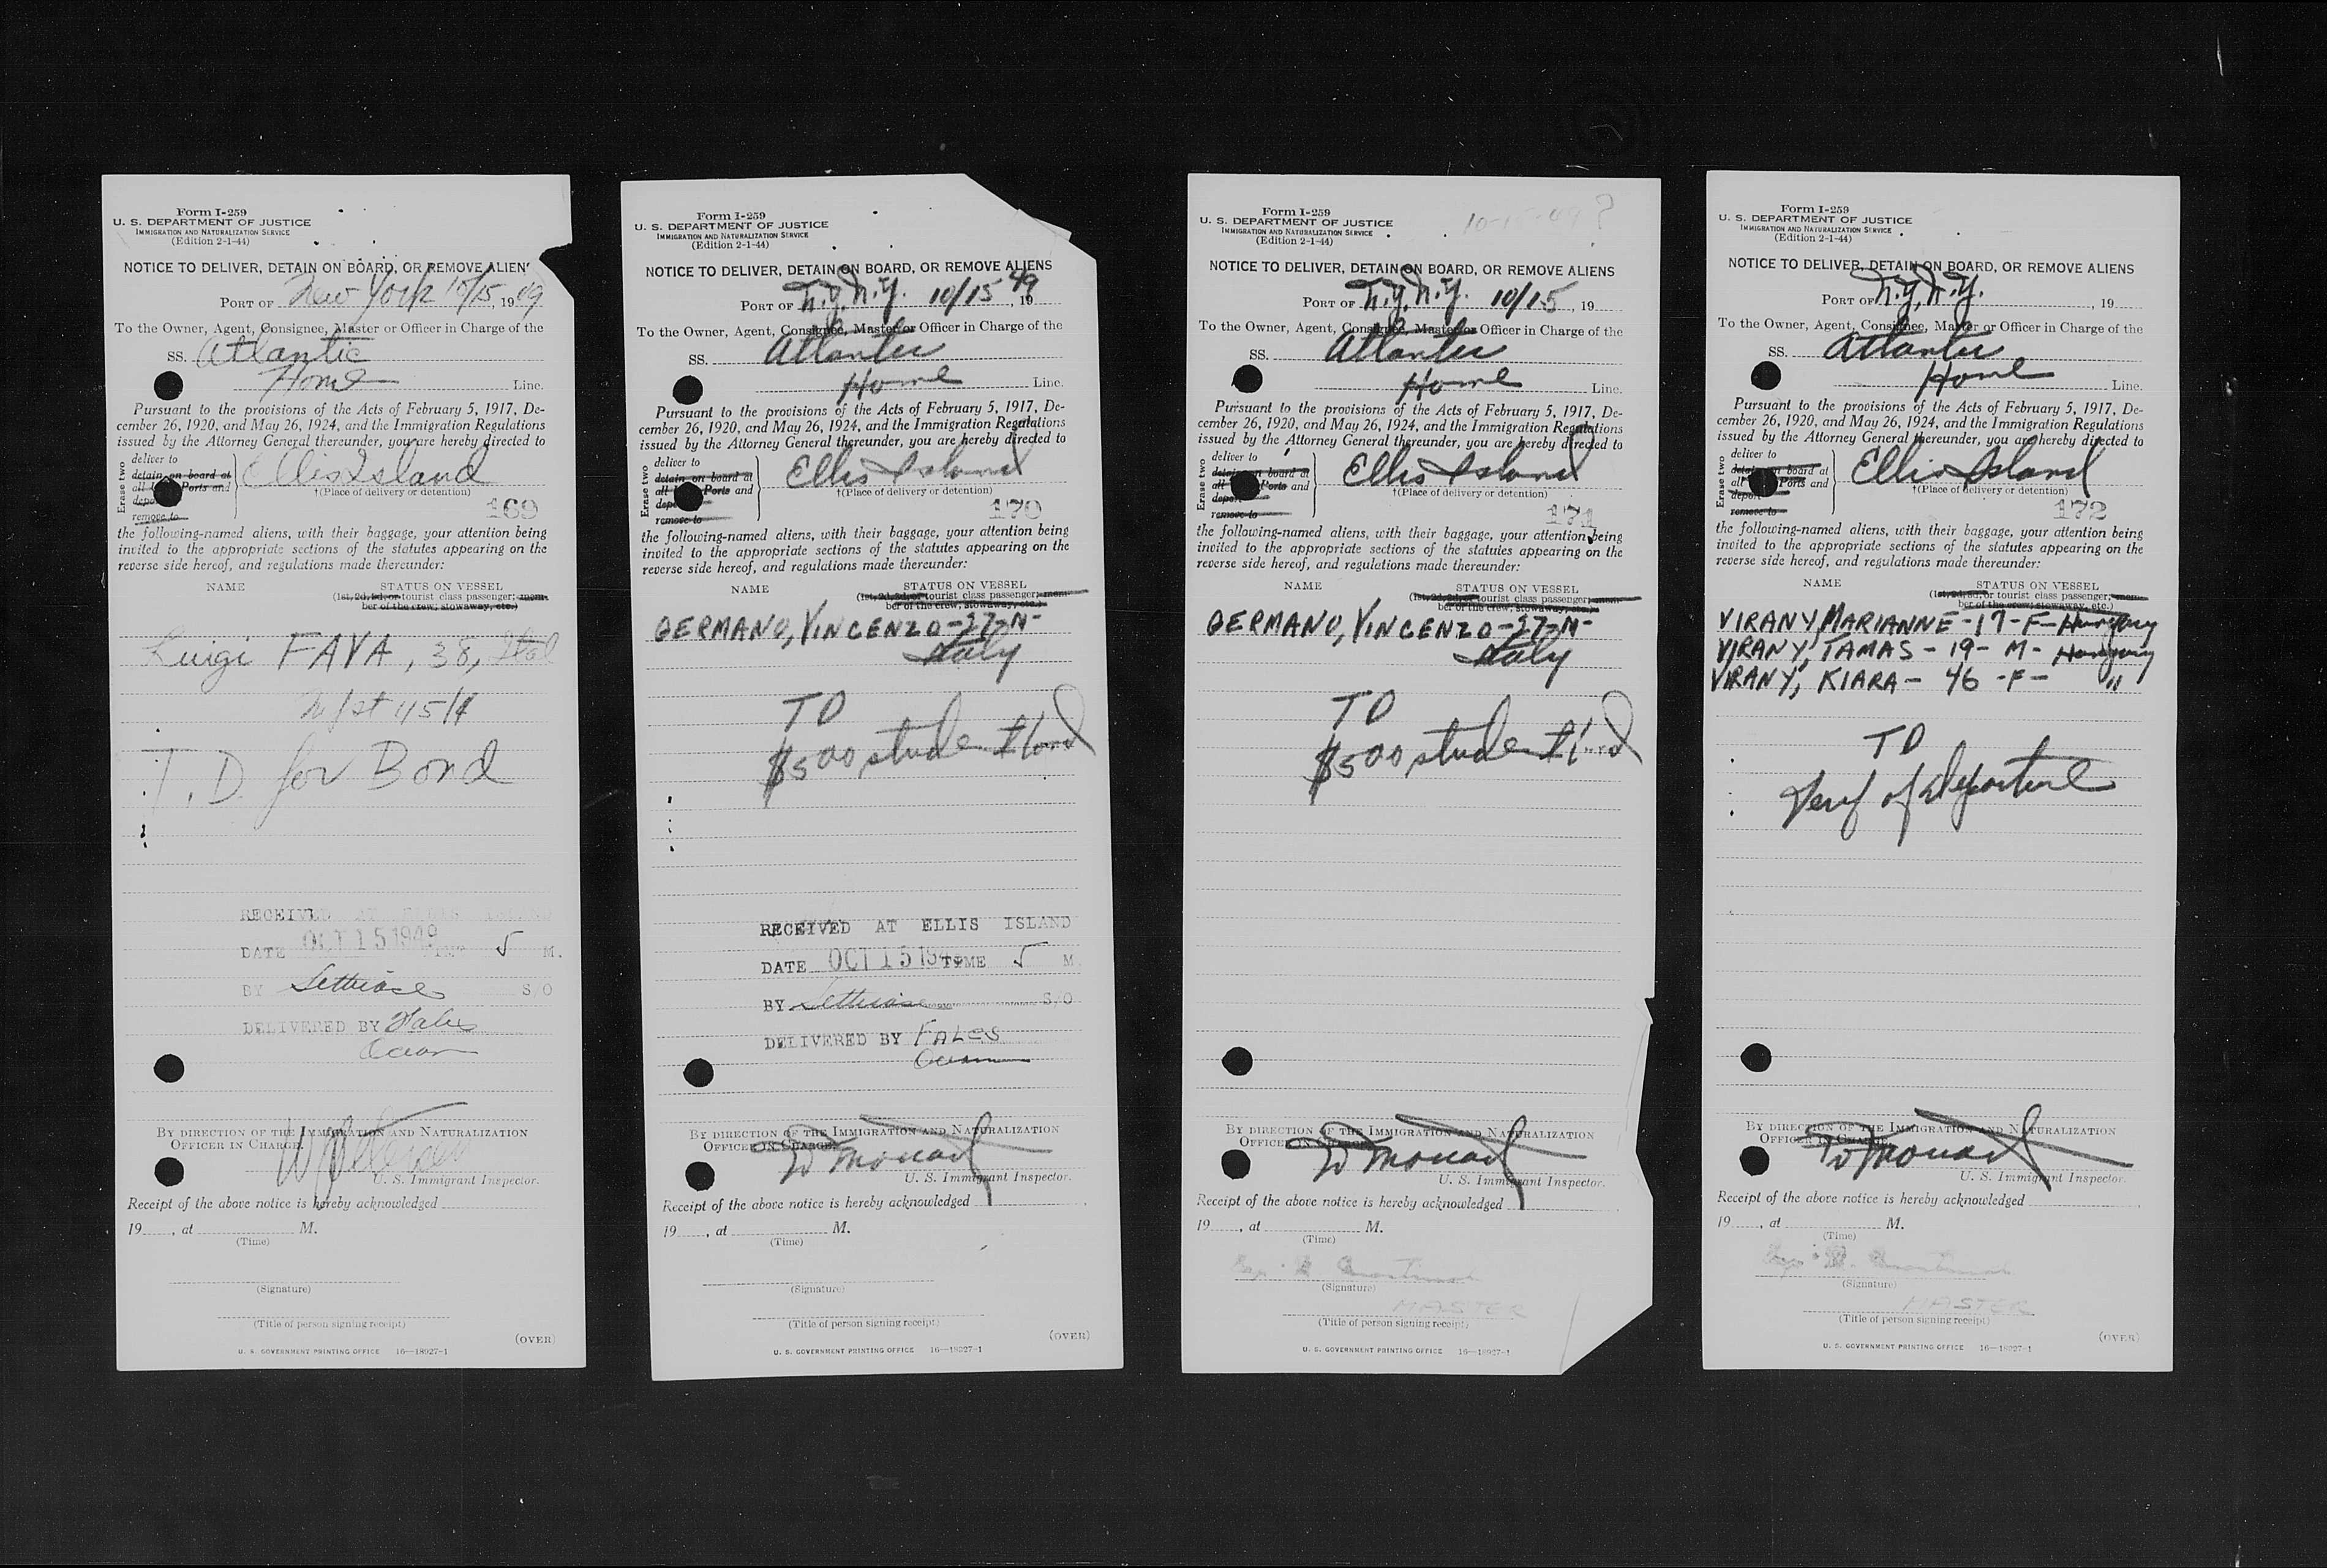 Form I-259
U. S. DEPARTMENT OF JUSTICE
IMMIGRATION AND NATURALIZATION SERVICE
(Edition 2-1-44)
NOTICE TO DELIVER, DETAIN ON BOARD, OR REMOVE ALIEN
PORT OF New York 10/15, 1949
To the Owner, Agent, Consignee, Master or Officer in Charge of the
SS. Atlantic
Home Line.
Pursuant to the provisions of the Acts of February 5, 1917, De-
cember 26, 1920, and May 26, 1924, and the Immigration Regulations
issued by the Attorney General thereunder, you are hereby directed to
Erase two
deliver to
detain on board at
all Ports and
depo
remove to
Ellis Island
†(Place of delivery or detention)
169
the following-named aliens, with their baggage, your attention being
invited to the appropriate sections of the statutes appearing on the
reverse side hereof, and regulations made thereunder:
NAME STATUS ON VESSEL
(1st, 2d, 3d, or tourist class passenger; mem-
ber of the crew; stowaway, etc.)
Luigi FAVA, 38, Ital
T.D. for Bond
RECEIVED AT ELLIS ISLAND
DATE OCT 15 1949 TIME 5 M.
BY S/O
DELIVERED BY Fales
Ocean
BY DIRECTION OF THE IMMIGRATION AND NATURALIZATION
OFFICER IN CHARGE
U. S. Immigrant Inspector.
Receipt of the above notice is hereby acknowledged
19, at M.
(Time)
(Signature)
(Title of person signing receipt)
(OVER)
U. S. GOVERNMENT PRINTING OFFICE 16—18927-1
Form I-259
U. S. DEPARTMENT OF JUSTICE
IMMIGRATION AND NATURALIZATION SERVICE
(Edition 2-1-44)
NOTICE TO DELIVER, DETAIN ON BOARD, OR REMOVE ALIENS
PORT OF N.Y. N.Y. 10/15, 1949
To the Owner, Agent, Consignee, Master or Officer in Charge of the
SS. Atlantic
Home Line.
Pursuant to the provisions of the Acts of February 5, 1917, De-
cember 26, 1920, and May 26, 1924, and the Immigration Regulations
issued by the Attorney General thereunder, you are hereby directed to
Erase two
deliver to
detain on board at
all Ports and
depo
remove to
Ellis Island
†(Place of delivery or detention)
170
the following-named aliens, with their baggage, your attention being
invited to the appropriate sections of the statutes appearing on the
reverse side hereof, and regulations made thereunder:
NAME STATUS ON VESSEL
(1st, 2d, 3d, or tourist class passenger; mem-
ber of the crew; stowaway, etc.)
GERMANO, VINCENZO-27-M-
Italy
TD
$500 student bond
RECEIVED AT ELLIS ISLAND
DATE OCT 15 1949 TIME 5 M
BY S/O
DELIVERED BY FALES
Ocean
BY DIRECTION OF THE IMMIGRATION AND NATURALIZATION
OFFICER IN CHARGE
U. S. Immigrant Inspector.
Receipt of the above notice is hereby acknowledged
19, at M.
(Time)
(Signature)
(Title of person signing receipt)
(OVER)
U. S. GOVERNMENT PRINTING OFFICE 16—18927-1
10-15-49?
Form I-259
U. S. DEPARTMENT OF JUSTICE
IMMIGRATION AND NATURALIZATION SERVICE
(Edition 2-1-44)
NOTICE TO DELIVER, DETAIN ON BOARD, OR REMOVE ALIENS
PORT OF N.Y. N.Y. 10/15, 19
To the Owner, Agent, Consignee, Master or Officer in Charge of the
SS. Atlantic
Home Line.
Pursuant to the provisions of the Acts of February 5, 1917, De-
cember 26, 1920, and May 26, 1924, and the Immigration Regulations
issued by the Attorney General thereunder, you are hereby directed to
Erase two
deliver to
detain on board at
all Ports and
depor
remove to
Ellis Island
†(Place of delivery or detention)
171
the following-named aliens, with their baggage, your attention being
invited to the appropriate sections of the statutes appearing on the
reverse side hereof, and regulations made thereunder:
NAME STATUS ON VESSEL
(1st, 2d, 3d, or tourist class passenger; mem-
ber of the crew; stowaway, etc.)
GERMANO, VINCENZO-27-M-
Italy
TD
$500 student bond
BY DIRECTION OF THE IMMIGRATION AND NATURALIZATION
OFFICER IN CHARGE
U. S. Immigrant Inspector.
Receipt of the above notice is hereby acknowledged
19, at M.
(Time)
(Signature)
MASTER
(Title of person signing receipt)
U. S. GOVERNMENT PRINTING OFFICE 16—18927-1
Form I-259
U. S. DEPARTMENT OF JUSTICE
IMMIGRATION AND NATURALIZATION SERVICE
(Edition 2-1-44)
NOTICE TO DELIVER, DETAIN ON BOARD, OR REMOVE ALIENS
PORT OF N.Y. N.Y. , 19
To the Owner, Agent, Consignee, Master or Officer in Charge of the
SS. Atlantic
Home Line.
Pursuant to the provisions of the Acts of February 5, 1917, De-
cember 26, 1920, and May 26, 1924, and the Immigration Regulations
issued by the Attorney General thereunder, you are hereby directed to
Erase two
deliver to
detain on board at
all Ports and
depor
remove to
Ellis Island
†(Place of delivery or detention)
172
the following-named aliens, with their baggage, your attention being
invited to the appropriate sections of the statutes appearing on the
reverse side hereof, and regulations made thereunder:
NAME STATUS ON VESSEL
(1st, 2d, 3d, or tourist class passenger; mem-
ber of the crew; stowaway, etc.)
VIRANY, MARIANNE-17-F-Hungary
VIRANY, TAMAS-19-M-Hungary
VIRANY, KIARA-46-F- "
TD
Verif of departure
BY DIRECTION OF THE IMMIGRATION AND NATURALIZATION
OFFICER IN CHARGE
U. S. Immigrant Inspector.
Receipt of the above notice is hereby acknowledged
19, at M.
(Time)
(Signature)
MASTER
(Title of person signing receipt)
(OVER)
U. S. GOVERNMENT PRINTING OFFICE 16—18927-1